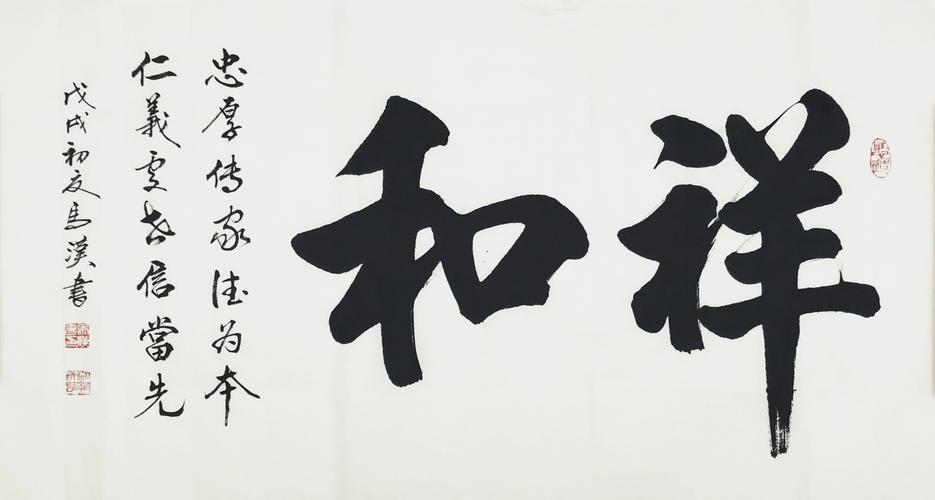 祥和
忠厚传家德为本
仁義处世信當先
戊戌初夏馬溪書